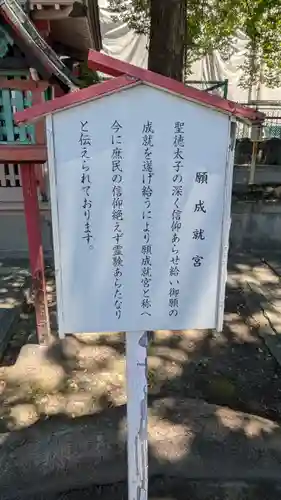 願成就宮
聖徳太子の深く信仰あらせ給い御願の
成就を遂げ給うにより願成就宮と称へ
今に庶民の信仰絶えず霊験あらたなり
と伝えられております。